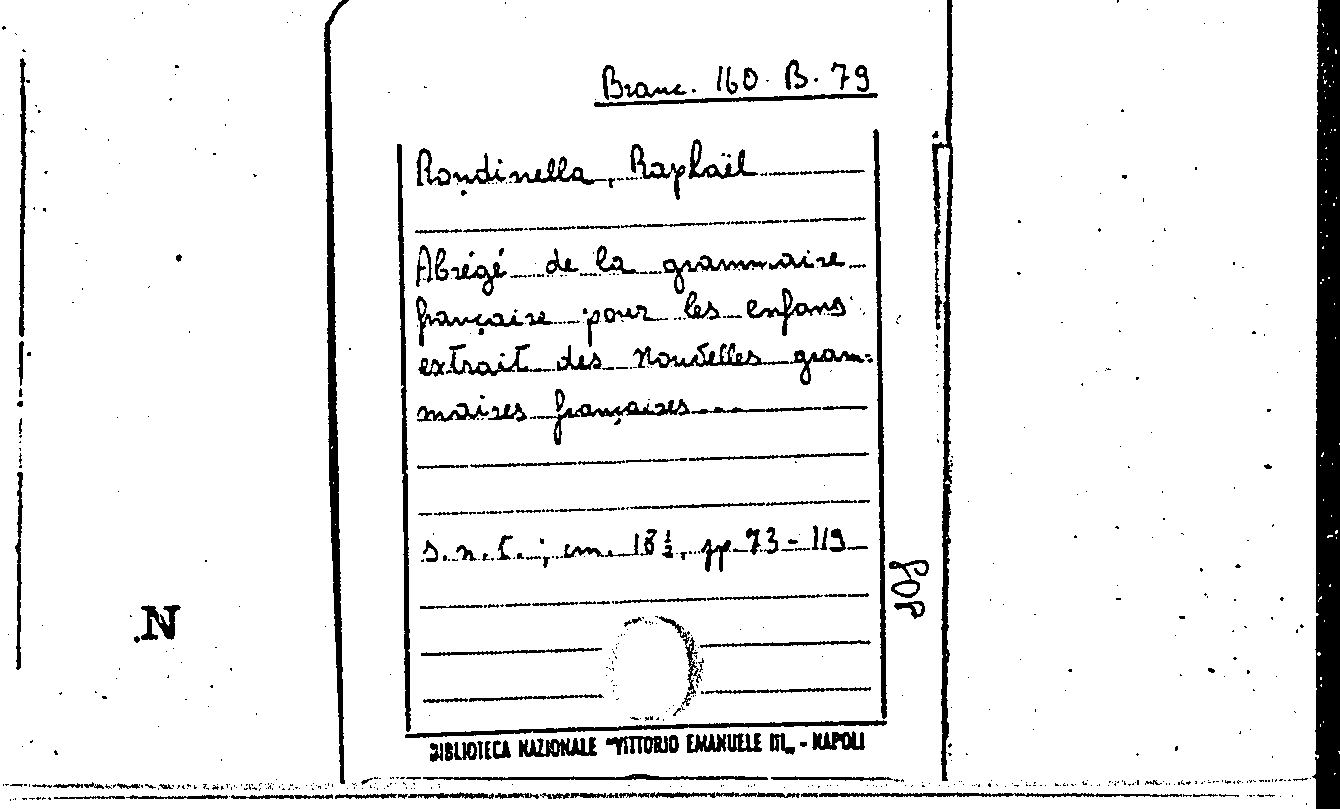 Branc. 160. B. 79
Rondinella, Raphaël
Abrégé de la grammaire
française pour les enfans
extrait des Nouvelles gram=
maires françaises...
s.n.t.; cm. 18½, pp. 73-119
N
BIBLIOTECA NAZIONALE "VITTORIO EMANUELE III„ - NAPOLI